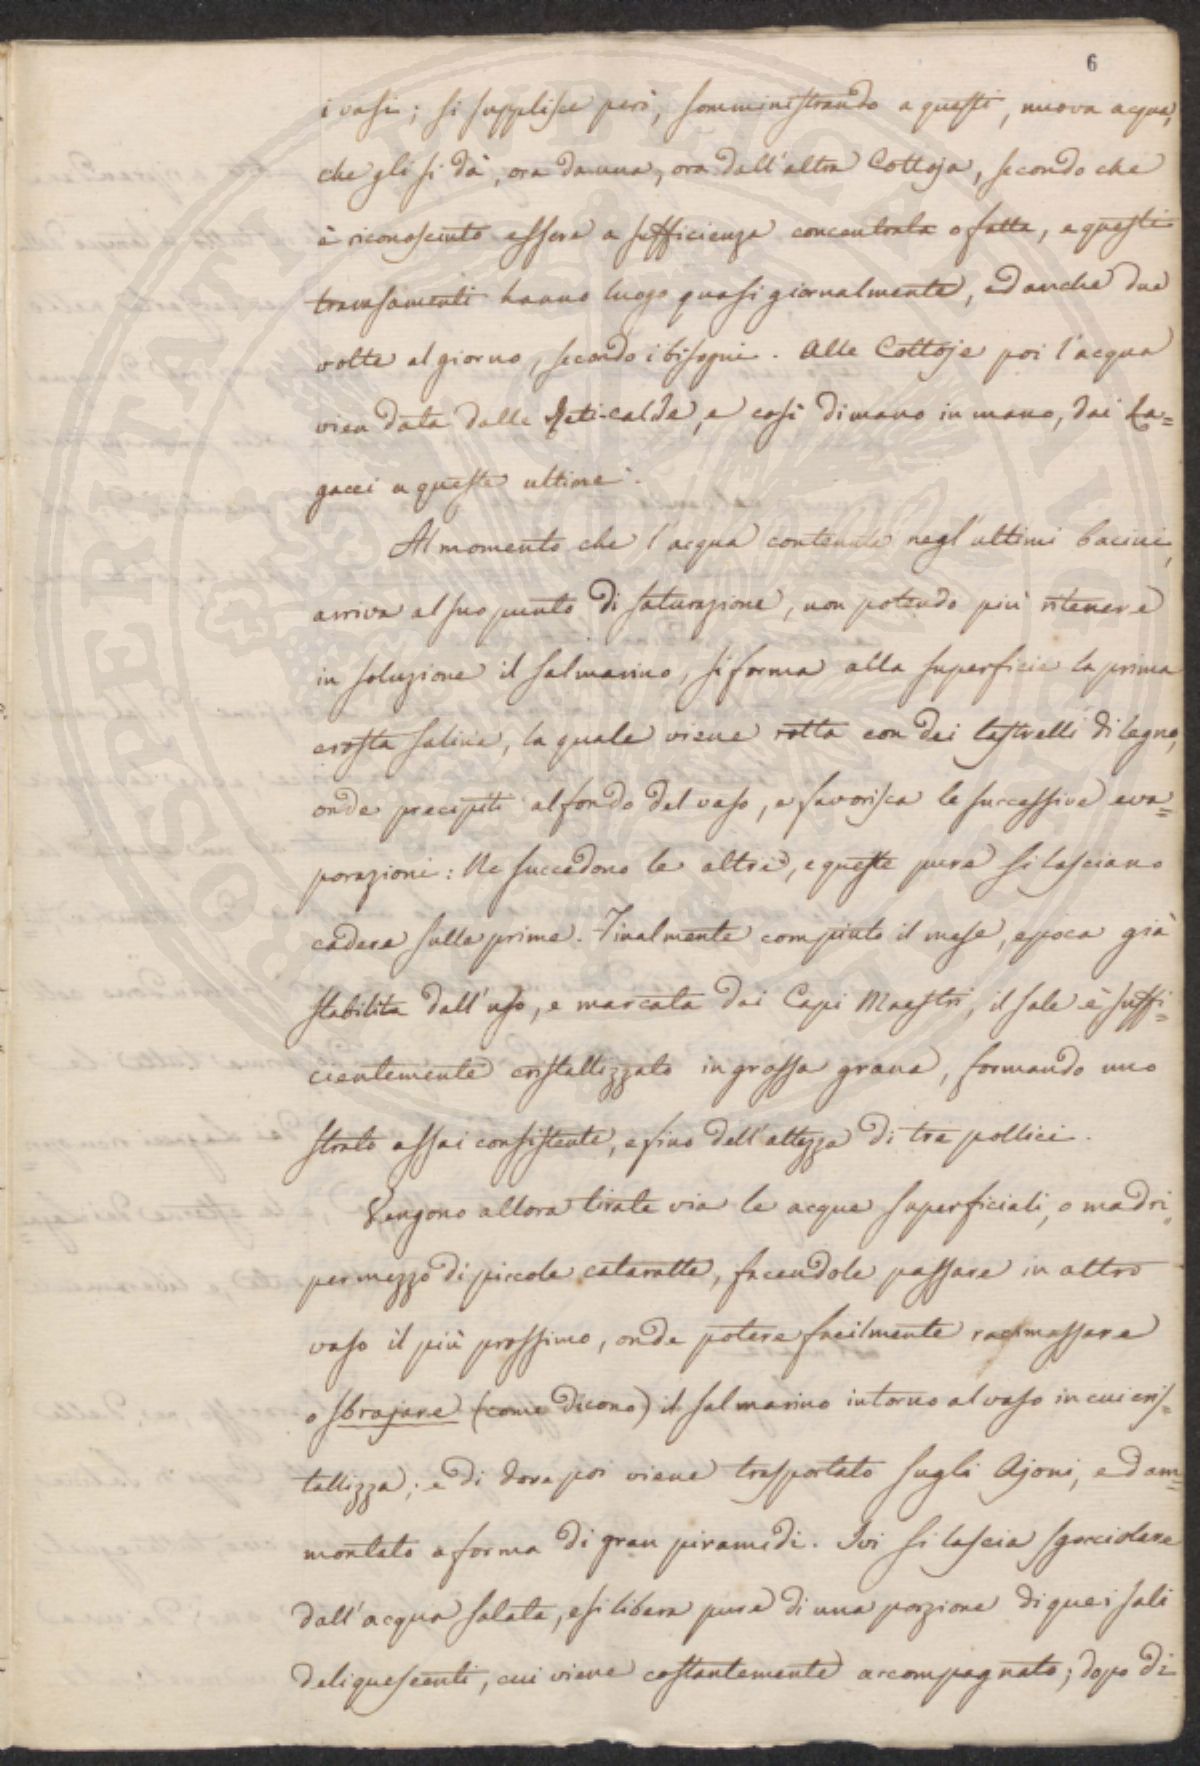 6
i vasi; si supplisce però, somministrando a questi, nuova acqua,
che gli si dà, ora da una, ora dall'altra Cottoja, secondo che
è riconosciuto essere a sufficienza concentrata o fatta, e questi
travasamenti hanno luogo quasi giornalmente, ed anche due
volte al giorno, secondo i bisogni. Alle Cottoje poi l'acqua
vien data dalle Reti-calde, e così di mano in mano, dai La=
gacci a queste ultime.
Al momento che l'acqua contenuta negl'ultimi bacini,
arriva al suo punto di saturazione, non potendo più ritenere
in soluzione il sal marino, si forma alla superficie la prima
crosta salina, la quale viene rotta con dei lastrelli di legno,
onde precipiti al fondo del vaso, e favorisca le successive eva=
porazioni: Ne succedono le altre, e queste pure si lasciano
cadere sulle prime. Finalmente compiuto il mese, epoca già
stabilita dall'uso, e marcata dai Capi Maestri, il sale è suffi=
cientemente cristallizzato in grossa grana, formando uno
strato assai consistente, e fino dell'altezza di tre pollici.
Vengono allora tirate via le acque superficiali, o madri,
per mezzo di piccole cataratte, facendole passare in altro
vaso il più prossimo, onde potere facilmente racimassare
o sbrajare (come dicono) il sal marino intorno al vaso in cui cris=
tallizza; e di dove poi viene trasportato sugli Ajoni, ed am=
montato a forma di gran piramidi. Ivi si lascia sgocciolare
dall'acqua salata, e si libera pure di una porzione di quei sali
deliquescenti, cui viene costantemente accompagnato; dopo di